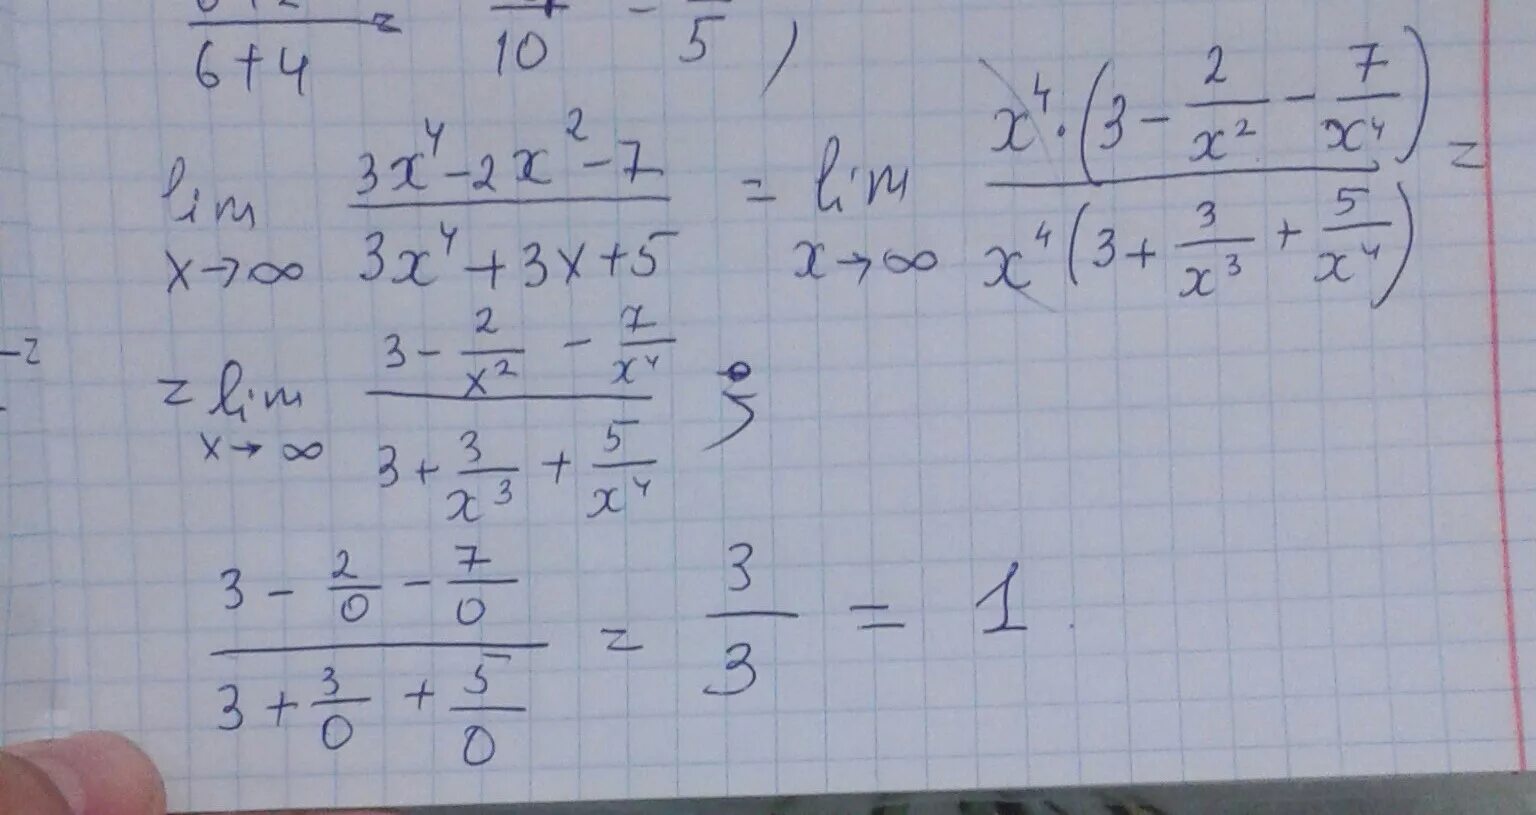 6+4 = 10 - 5 ,
lim x→∞ (3x⁴-2x²-7)/(3x⁴+3x+5) = lim x→∞ (x⁴·(3-2/x²-7/x⁴))/(x⁴(3+3/x³+5/x⁴)) =
= lim x→∞ (3-2/x²-7/x⁴)/(3+3/x³+5/x⁴)
(3-2/0-7/0)/(3+3/0+5/0) = 3/3 = 1.